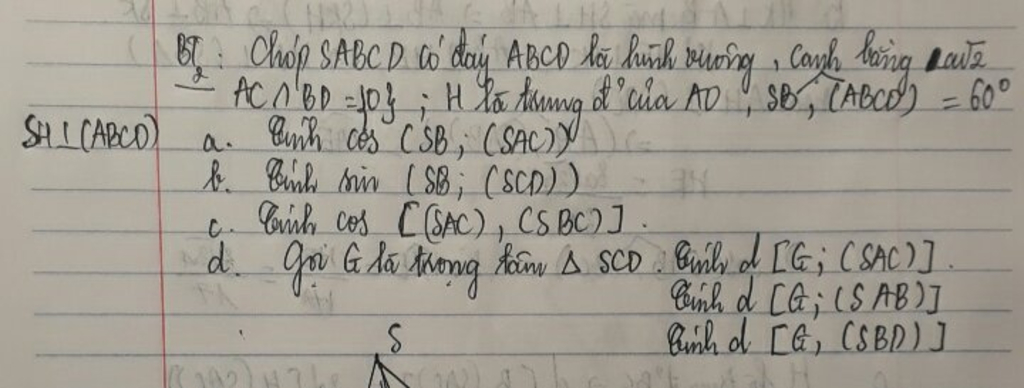 BT2 : Chóp SABCD có đáy ABCD là hình vuông, cạnh bằng a√2
AC ∩ BD = {O} ; H là trung đ° của AO, SB, (ABCD) = 60°
SH ⊥ (ABCD)
a. Tính cos (SB ; (SAC))
b. Tính sin (SB ; (SCD))
c. Tính cos [(SAC), (SBC)].
d. Gọi G là trọng tâm Δ SCD. Tính d [G ; (SAC)].
Tính d [G ; (SAB)]
Tính d [G, (SBD)]
S